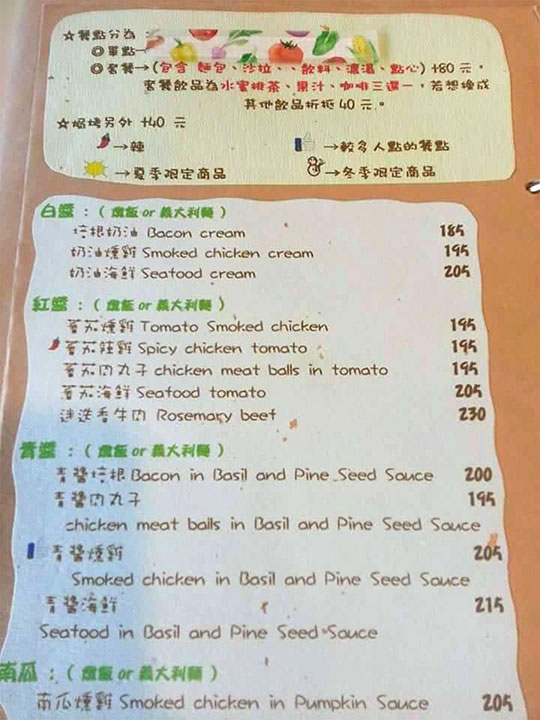 ☆餐點分為：
◎單點→
◎套餐→(包含 麵包、沙拉、、飲料、濃湯、點心) +80 元，
套餐飲品為水蜜桃茶、果汁、咖啡三選一，若想換成
其他飲品折抵 40 元。
☆焗烤另外 +40 元
→辣 →較多人點的餐點
→夏季限定商品 →冬季限定商品
白醬：( 燉飯 or 義大利麵 )
培根奶油 Bacon cream 185
奶油燻雞 Smoked chicken cream 195
奶油海鮮 Seafood cream 205
紅醬：( 燉飯 or 義大利麵 )
蕃茄燻雞 Tomato Smoked chicken 195
蕃茄辣雞 Spicy chicken tomato 195
蕃茄肉丸子 chicken meat balls in tomato 195
蕃茄海鮮 Seafood tomato 205
迷迭香牛肉 Rosemary beef 230
青醬：( 燉飯 or 義大利麵 )
青醬培根 Bacon in Basil and Pine Seed Sauce 200
青醬肉丸子 195
chicken meat balls in Basil and Pine Seed Sauce
青醬燻雞 205
Smoked chicken in Basil and Pine Seed Sauce
青醬海鮮 215
Seafood in Basil and Pine Seed Sauce
南瓜：( 燉飯 or 義大利麵 )
南瓜燻雞 Smoked chicken in Pumpkin Sauce 205